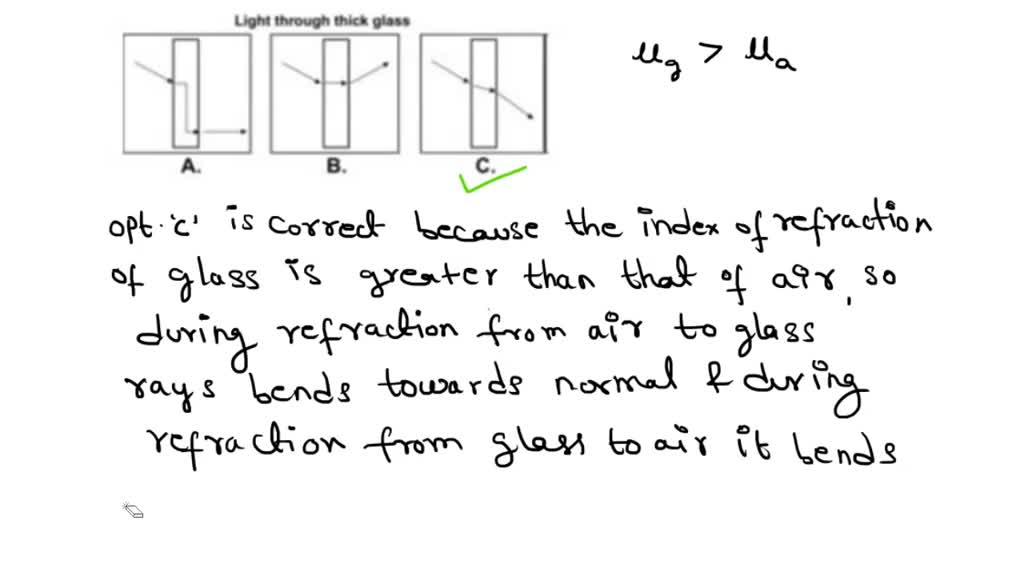 Light through thick glass
μg > μa
A. B. C.
opt. 'c' is correct because the index of refraction
of glass is greater than that of air, so
during refraction from air to glass
rays bends towards normal & during
refraction from glass to air it bends